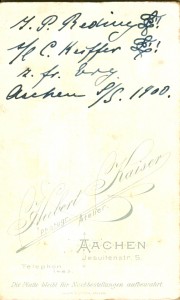 J. P. Reding
C. Keiffer
z. fr. Erg.
Aachen S/S. 1900.
Hubert Kaiser
Atelier
AACHEN
Jesuitenstr. 5.
Telephon
Die Platte bleibt für Nachbestellungen aufbewahrt.